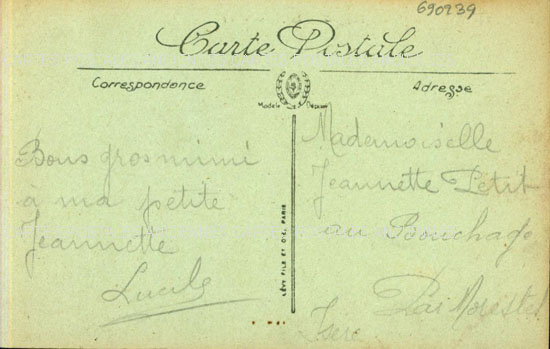 690939
Carte Postale
Correspondence
Adresse
Modèle Déposé
Bons gros mimi
à ma petite
Jeannette
Lucile
LÉVY FILS ET CIE, PARIS
Mademoiselle
Jeannette Petit
au Bouchage
Par Morestel
Isère